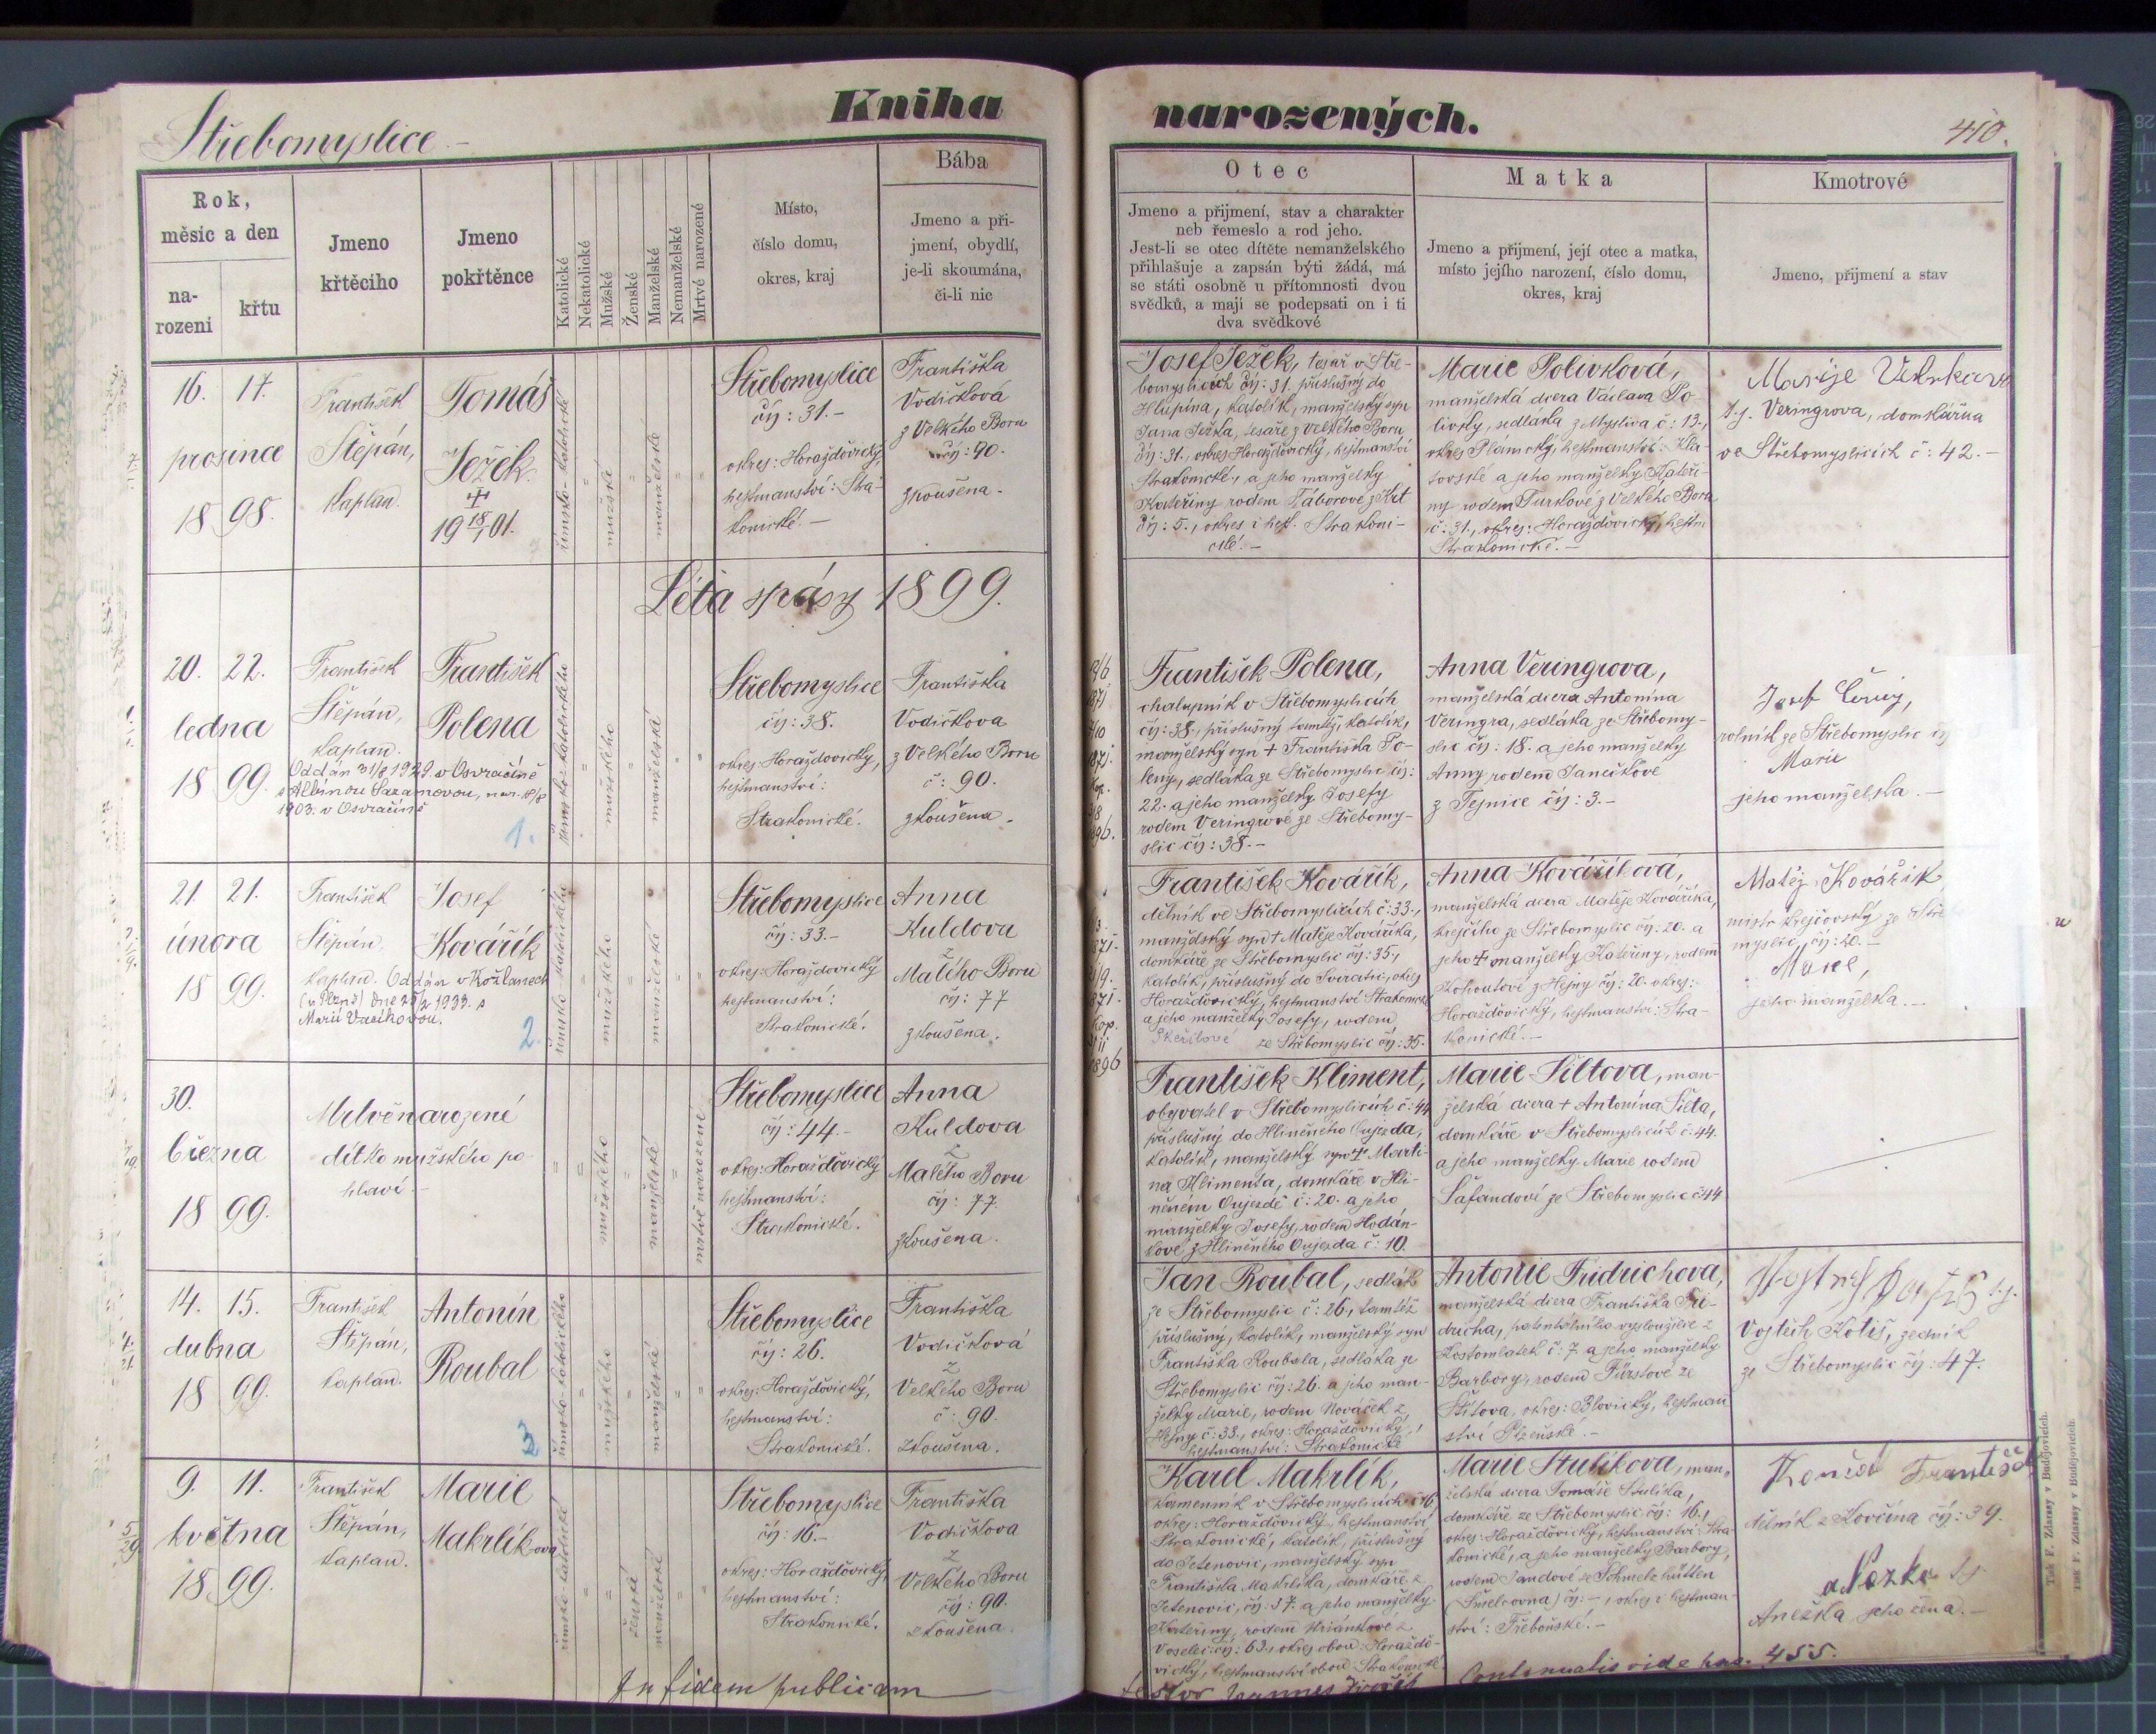 Střebomyslice
Kniha narozených.
410.
Rok,
měsíc a den
na-
rození
křtu
Jmeno
křtěcího
Jmeno
pokřtěnce
Katolické
Nekatolické
Mužské
Ženské
Manželské
Nemanželské
Mrtvé narozené
Místo,
číslo domu,
okres, kraj
Bába
Jmeno a při-
jmení, obydlí,
je-li skoumána,
či-li nic
Otec
Jmeno a přijmení, stav a charakter
neb řemeslo a rod jeho.
Jest-li se otec dítěte nemanželského
přihlašuje a zapsán býti žádá, má
se státi osobně u přítomnosti dvou
svědků, a mají se podepsati on i ti
dva svědkové
Matka
Jmeno a přijmení, její otec a matka,
místo jejího narození, číslo domu,
okres, kraj
Kmotrové
Jmeno, přijmení a stav
16. 17.
prosince
18 98.
František
Štěpán,
kaplan.
Tomáš
Ježek.
19 18/1 01.
římsko-katolické
mužské
manželské
Střebomyslice
čp: 31.-
okres: Horažďovický,
hejtmanství: Stra-
konické.-
Františka
Vodičková
z Velkého Boru
čp: 90.
zkoušena.
Josef Ježek, tesař v Stře-
bomyslicích čp: 31. příslušný do
Hlupína, katolík, manželský syn
Jana Ježka, tesaře z Velkého Boru
čp: 31., okres Horažďovický, hejtmanství
Strakonické, a jeho manželky
Kateřiny rodem Táborové z Krt
čp: 5., okres i hejt. Strakoni-
cké.-
Marie Polívková,
manželská dcera Václava Po-
lívky, sedláka z Myslíva č: 13.,
okres Plánický, hejtmanství: Kla-
tovské a jeho manželky Kateři-
ny rodem Turkové z Velkého Bora
č: 31., okres: Horažďovický, hejtm
Strakonické.-
Marije
t.j. Veringrova, domkářka
ve Střebomyslicích č: 42.-
Léta spásy 1899.
20. 22.
ledna
18 99.
František
Štěpán,
kaplan.
Oddán 31/8 1929 v Osvračíně
s Albínou Sazamovou, nar. 18/8
1903. v Osvračíně
František
Polena
1.
mužského
manželská
Střebomyslice
čp: 38.
okres Horažďovický,
hejtmanství:
Strakonické.
Františka
Vodičkova
z Velkého Boru
č: 90.
zkoušena.
František Polena,
chalupník v Střebomyslicích
čp: 38., příslušný tamtéž, katolík,
manželský syn + Františka Po-
leny, sedláka ze Střebomyslic čp:
22. a jeho manželky Josefy
rodem Veringrové ze Střebomy-
slic čp: 38.-
Anna Veringrova,
manželská dcera Antonína
Veringra, sedláka ze Střebomy-
slic čp: 18. a jeho manželky
Anny rodem Janečkové
z Tejnice čp: 3.-
Josef Černý,
rolník ze Střebomyslic
Marie
jeho manželka.-
21. 21.
února
18 99.
František
Štěpán,
kaplan. Oddán v Kožlanech
(u Plzně) dne 25/2 1933. s
Marií Vacíkovou.
Josef
Kovářík
2.
mužského
manželské
Střebomyslice
čp: 33.-
okres: Horažďovický
hejtmanství:
Strakonické.
Anna
Kuldova
z
Malého Boru
čp: 77
zkoušena.
František Kovářík,
dělník ve Střebomyslicích č: 33.,
manželský syn + Matěje Kováříka,
domkáře ze Střebomyslic čp: 35.,
katolík, příslušný do Svéradic, okres
Horažďovický, hejtmanství Strakonické
a jeho manželky Josefy, rodem
ze Střebomyslic čp: 35.
Anna Kováříková,
manželská dcera Matěje Kováříka,
krejčího ze Střebomyslic čp: 20. a
jeho + manželky Kateřiny, rodem
Kohoutové z Hejny čp: 20. okres:
Horažďovický, hejtmanství: Stra-
konické.-
Matěj Kovářík
mistr krejčovský ze Stře
myslic, čp: 20.-
Marie,
jeho manželka.-
30.
března
18 99.
Mrtvěnarozené
dítko mužského po-
hlaví.-
mužského
manželské
mrtvě narozené
Střebomyslice
čp: 44.-
okres: Horažďovický
hejtmanství:
Strakonické.
Anna
Kuldova
z
Malého Boru
čp: 77.
zkoušena.
František Kliment,
obyvatel v Střebomyslicích č: 44
příslušný do Hliněného Oujezda,
katolík, manželský syn + Marti-
na Klimenta, domkáře v Hli-
něném Oujezdě č: 20. a jeho
manželky Josefy, rodem Hodán-
kové z Hliněného Oujezda č: 10.
Marie Siltova, man-
želská dcera + Antonína Silta,
domkáře v Střebomyslicích č: 44.
a jeho manželky Marie rodem
Šafandové ze Střebomyslic č 44.
14. 15.
dubna
18 99.
František
Štěpán,
kaplan.
Antonín
Roubal
3
římsko-katolického
mužského
manželské
Střebomyslice
čp: 26.
okres: Horažďovický,
hejtmanství:
Strakonické.
Františka
Vodičková
z
Velkého Boru
č: 90.
zkoušena.
Jan Roubal, sedlák
ze Střebomyslic č: 26., tamtéž
příslušný, katolík, manželský syn
Františka Roubala, sedláka ze
Střebomyslic čp: 26. a jeho man-
želky Marie, rodem Nováček z
Hejny č: 33., okres: Horažďovický,
hejtmanství: Strakonické
Antonie Fridrichova,
manželská dcera Františka Fri-
dricha, patentálního vysloužilce z
Žestomlatek č: 7. a jeho manželky
Barbory, rodem Fürstové ze
Štítova, okres: Blovický, hejtman-
ství Plzeňské.-
t.j.
Vojtěch Kotiš, zedník
ze Střebomyslic čp: 47.
9. 11.
května
18 99.
František
Štěpán,
kaplan.
Marie
Makrlíkova
ženské
manželské
Střebomyslice
čp: 16.-
okres: Horažďovický,
hejtmanství:
Strakonické.
Františka
Vodičkova
z
Velkého Boru
čp: 90.
zkoušena.
Karel Makrlík,
kamenník v Střebomyslicích č: 16,
okres: Horažďovický, hejtmanství
Strakonické, katolík, příslušný
do Jetenovic, manželský syn
Františka Makrlíka, domkáře z
Jetenovic, čp: 37. a jeho manželky
Kateřiny, rodem
čp: 63., okres obou: Horažďo-
vický, hejtmanství obou Strakonické
Marie Stulíkova, man-
želská dcera Tomáše Stulíka,
domkáře ze Střebomyslic čp: 16.,
okres: Horažďovický, hejtmanství: Stra-
konické, a jeho manželky Barbory,
rodem Jandové ze Schmelzhütten
čp: -, okres i hejtman-
ství: Třeboňské.-
František
dělník z Kovčína čp: 39.
Anežka, jeho žena.-
In fidem publicam
Continuatio vide pag. 455.
Tisk F. Zdarssy v Budějovicích.